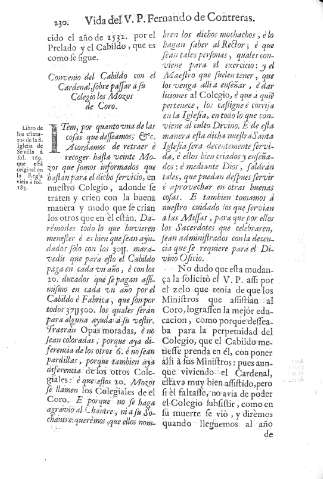 230. Vida del V. P. Fernando de Contreras.
cido el año de 1532. por el
Prelado y el Cabildo, que es
como se sigue.
Convenio del Cabildo con el
Cardenal, sobre passar à su
Colegio los Mozos
de Coro.
Libro de
Iglesia de
Sevilla à
fol. 169.
original en
ITem, por quanto una de las
cosas que desseamos, &c.
Acordamos de retraer è
recoger hasta veinte Mo-
zos que somos informados que
bastan para el dicho servicio, en
nuestro Colegio, adonde se
traten y crien con la buena
manera y modo que se crian
los otros que en èl estàn. Da-
rèmosles todo lo que huvieren
menester è es bien que sean ayu-
dados sòlo con los 30y. mara-
vedis que para esto el Cabildo
paga en cada vn año, è con los
20. ducados que se pagan assi-
mismo en cada vn año por el
Cabildo è Fabrica, que son por
todos 37y500. los quales seràn
para alguna ayuda à su vestir.
Traeràn Opas moradas, è no
sean coloradas, porque aya di-
ferencia de los otros 6. è no sean
pardillas, porque tambien aya
diferencia de los otros Cole-
giales: è que estos 20. Mozos
se llamen los Colegiales de el
Coro. E porque no se haga
agravio al Chantre, ni à su So-
chantre: queremos que ellos nom-
bren los dichos mochachos, è lo
hagan saber al Rector; è que
sean tales personas, quales conv-
iene para el exercicio: y el
Maestro que suelen tener, que
los venga alli à enseñar, è dar
liciones al Colegio, è que à quiè
pertenece, los castigue è corrija
en la Iglesia, en todo lo que con-
viene al culto Divino. E de esta
manera à esta dicha nuestra Santa
Iglesia serà decentemente servi-
da, è ellos bien criados y enseña-
dos: è mediante Dios, saldràn
tales, que puedan despues servir
è aprovechar en otras buenas
cosas. E tambien tomamos à
nuestro cuidado los que serviràn
à las Missas, para que por ellos
los Sacerdotes que celebraren,
sean administrados con la decen-
cia que se requiere para el Di-
vino Oficio.
No dudo que esta mudan-
ça la solicitò el V. P. assi por
el zelo que tenia de que los
Ministros que assistian al
Coro, lograssen la mejor edu-
cacion, como porque dessea-
ba para la perpetuidad del
Colegio, que el Cabildo me-
tiesse prenda en èl, con poner
alli à sus Ministros: pues aun-
que viviendo el Cardenal,
estava muy bien assistido, pero
si èl faltasse, no avia de poder
el Colegio subsistir, como en
su muerte se viò, y dirèmos
quando lleguemos al año
de